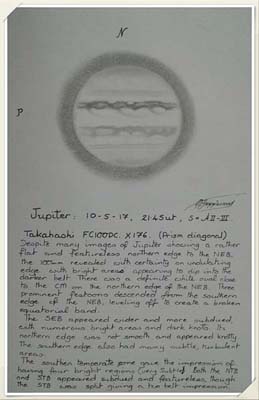 N
P
Jupiter: 10-5-17, 2145ut, S=AII-III.
Takahashi FC100DC. X176. (Prism diagonal)
Despite many images of Jupiter showing a rather
flat and featureless northern edge to the NEB.
the 100mm revealed with certainty an undulating
edge with bright areas appearing to dip into the
darker belt. There was a definite white oval close
to the CM on the northern edge of the NEB. Three
prominent festoons descended from the southern
edge of the NEB, levelling off to create a broken
equatorial band.
The SEB appeared wider and more subdued,
with numerous bright areas and dark knots. Its
northern edge was not smooth and appeared knotty.
The southern edge also had many subtle, turbulent
areas.
The southern temperate zone gave the impression of
having four bright regions (very subtle). Both the NTB
and STB appeared subdued and featureless, though
the STB was split giving a twin belt impression.